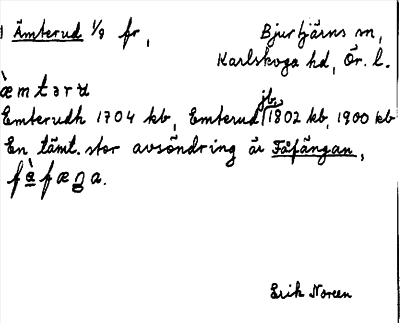 Ämterud 1/8 fr,
Bjurtjärns sn,
Karlskoga hd, Ör. l.
æ̀mtərʉ
Emterudh 1704 kb, Emterud jb, 1802 kb, 1900 kb
En tämt. stor avsöndring är Fåfängan,
fæga.
Erik Noreen